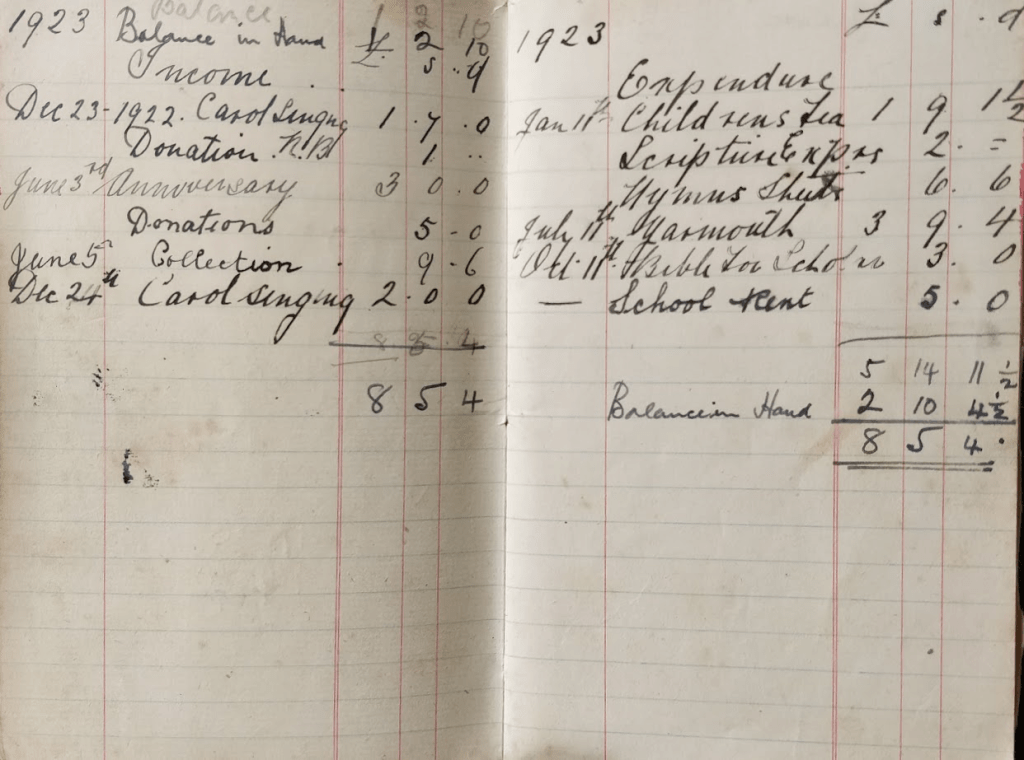 Balance 10
1923 Balance in Hand 1 2 10
Income . £ s .. d
Dec 23-1922. Carol Singing 1 . 7 . 0
Donation . 1 ..
June 3rd Anniversary 3 0 . 0
Donations 5 - 0
June 5 Collection . 9 - 6
Dec 24th Carol singing 2 . 0 0
8 5 4
8 5 4
£ s . d
1923
Expendure
Jan 11th Childrens Tea 1 9 1 1/2
Scripture Exprs 2 . =
Hymns Sheets 6 . 6
July 11th Yarmouth 3 9 . 4
Oct 11th Bible for Scholar 3 . 0
— School Rent 5 . 0
5 14 11 1/2
Balance in Hand 2 10 4 1/2
8 5 4 .